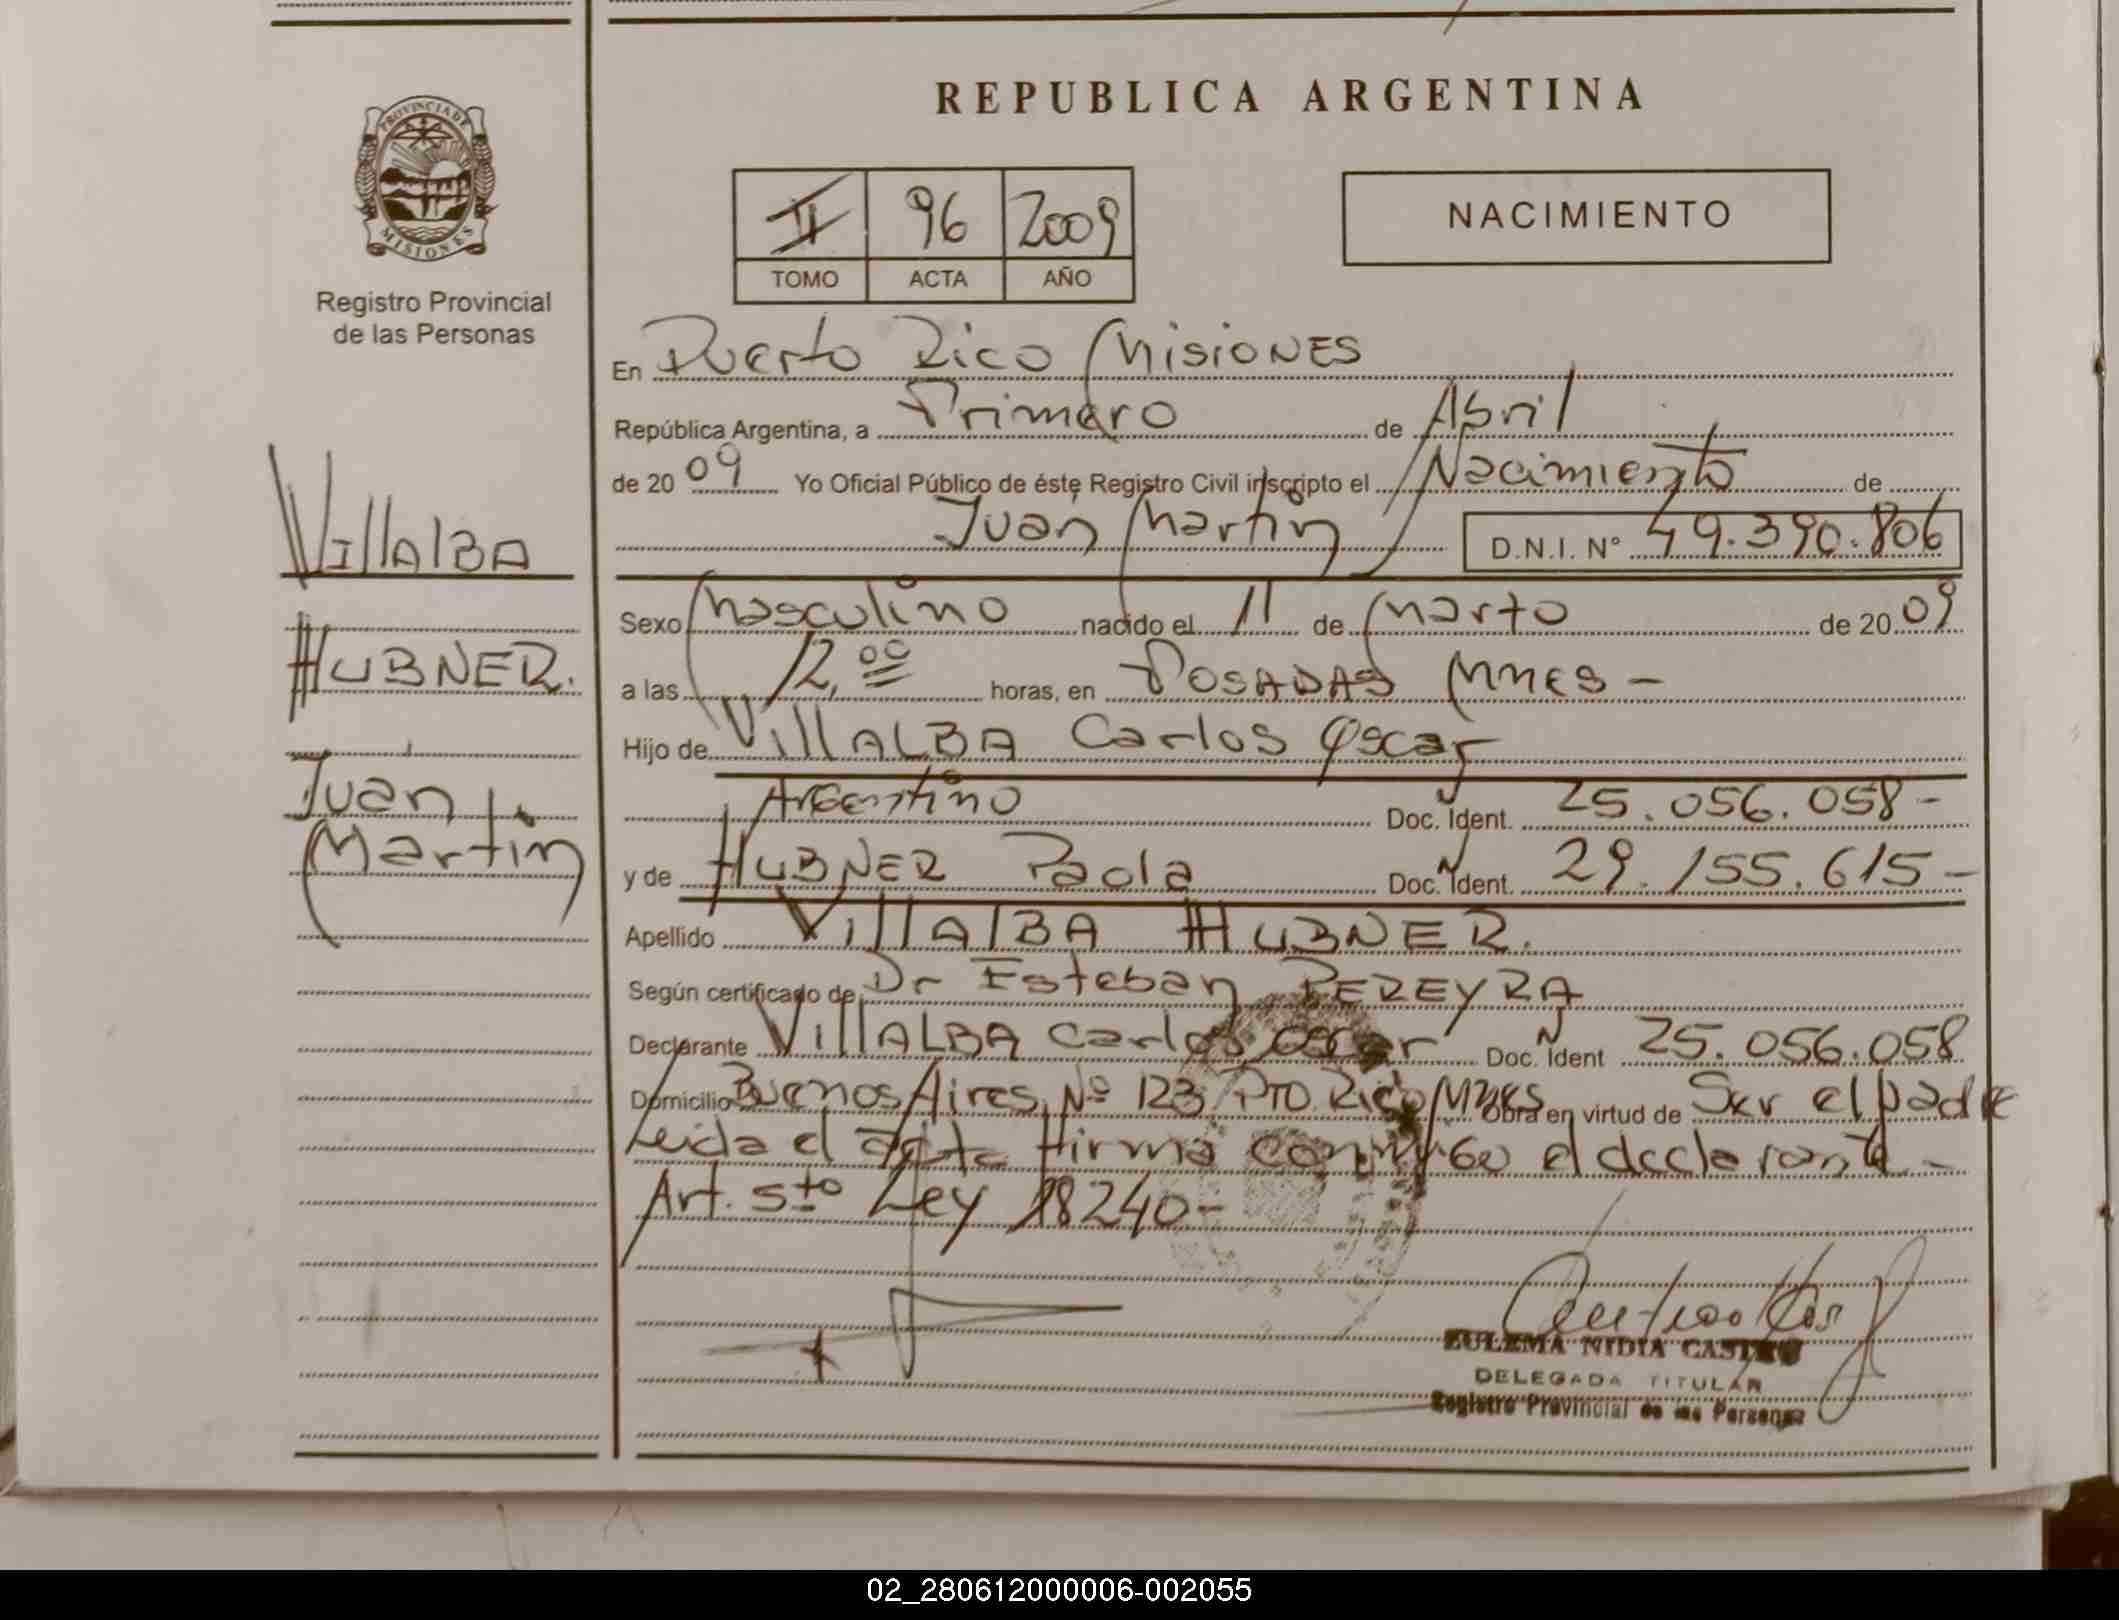 REPUBLICA ARGENTINA
PROVINCIA DE
MISIONES
Registro Provincial
de las Personas
II 96 2009
TOMO ACTA AÑO
NACIMIENTO
En Puerto Rico Misiones
República Argentina, a Primero de Abril
de 20 09 Yo Oficial Público de éste Registro Civil inscripto el Nacimiento de
Juan Martin D.N.I. N° 49.390.806
VillALBA
HUBNER.
Juan
Martin
Sexo Masculino nacido el 11 de Marzo de 20 09
a las 12,00 horas, en POSADAS Mnes -
Hijo de VillALBA Carlos Oscar
Argentino Doc. Ident. 25.056.058-
y de HUBNER Paola Doc. Ident. 29.155.615-
Apellido VillALBA HUBNER.
Según certificado de Dr Esteban PEREYRA
Declarante VillALBA Carlos Oscar Doc. Ident 25.056.058
Domicilio Buenos Aires Nº 123 Pto. Rico Mnes Obra en virtud de Ser el padre
Leida el acta firma conmigo el declarante -
Art. 5to Ley 18240-
EULEMA NIDIA CASTRO
DELEGADA TITULAR
Registro Provincial de las Personas
02_280612000006-002055